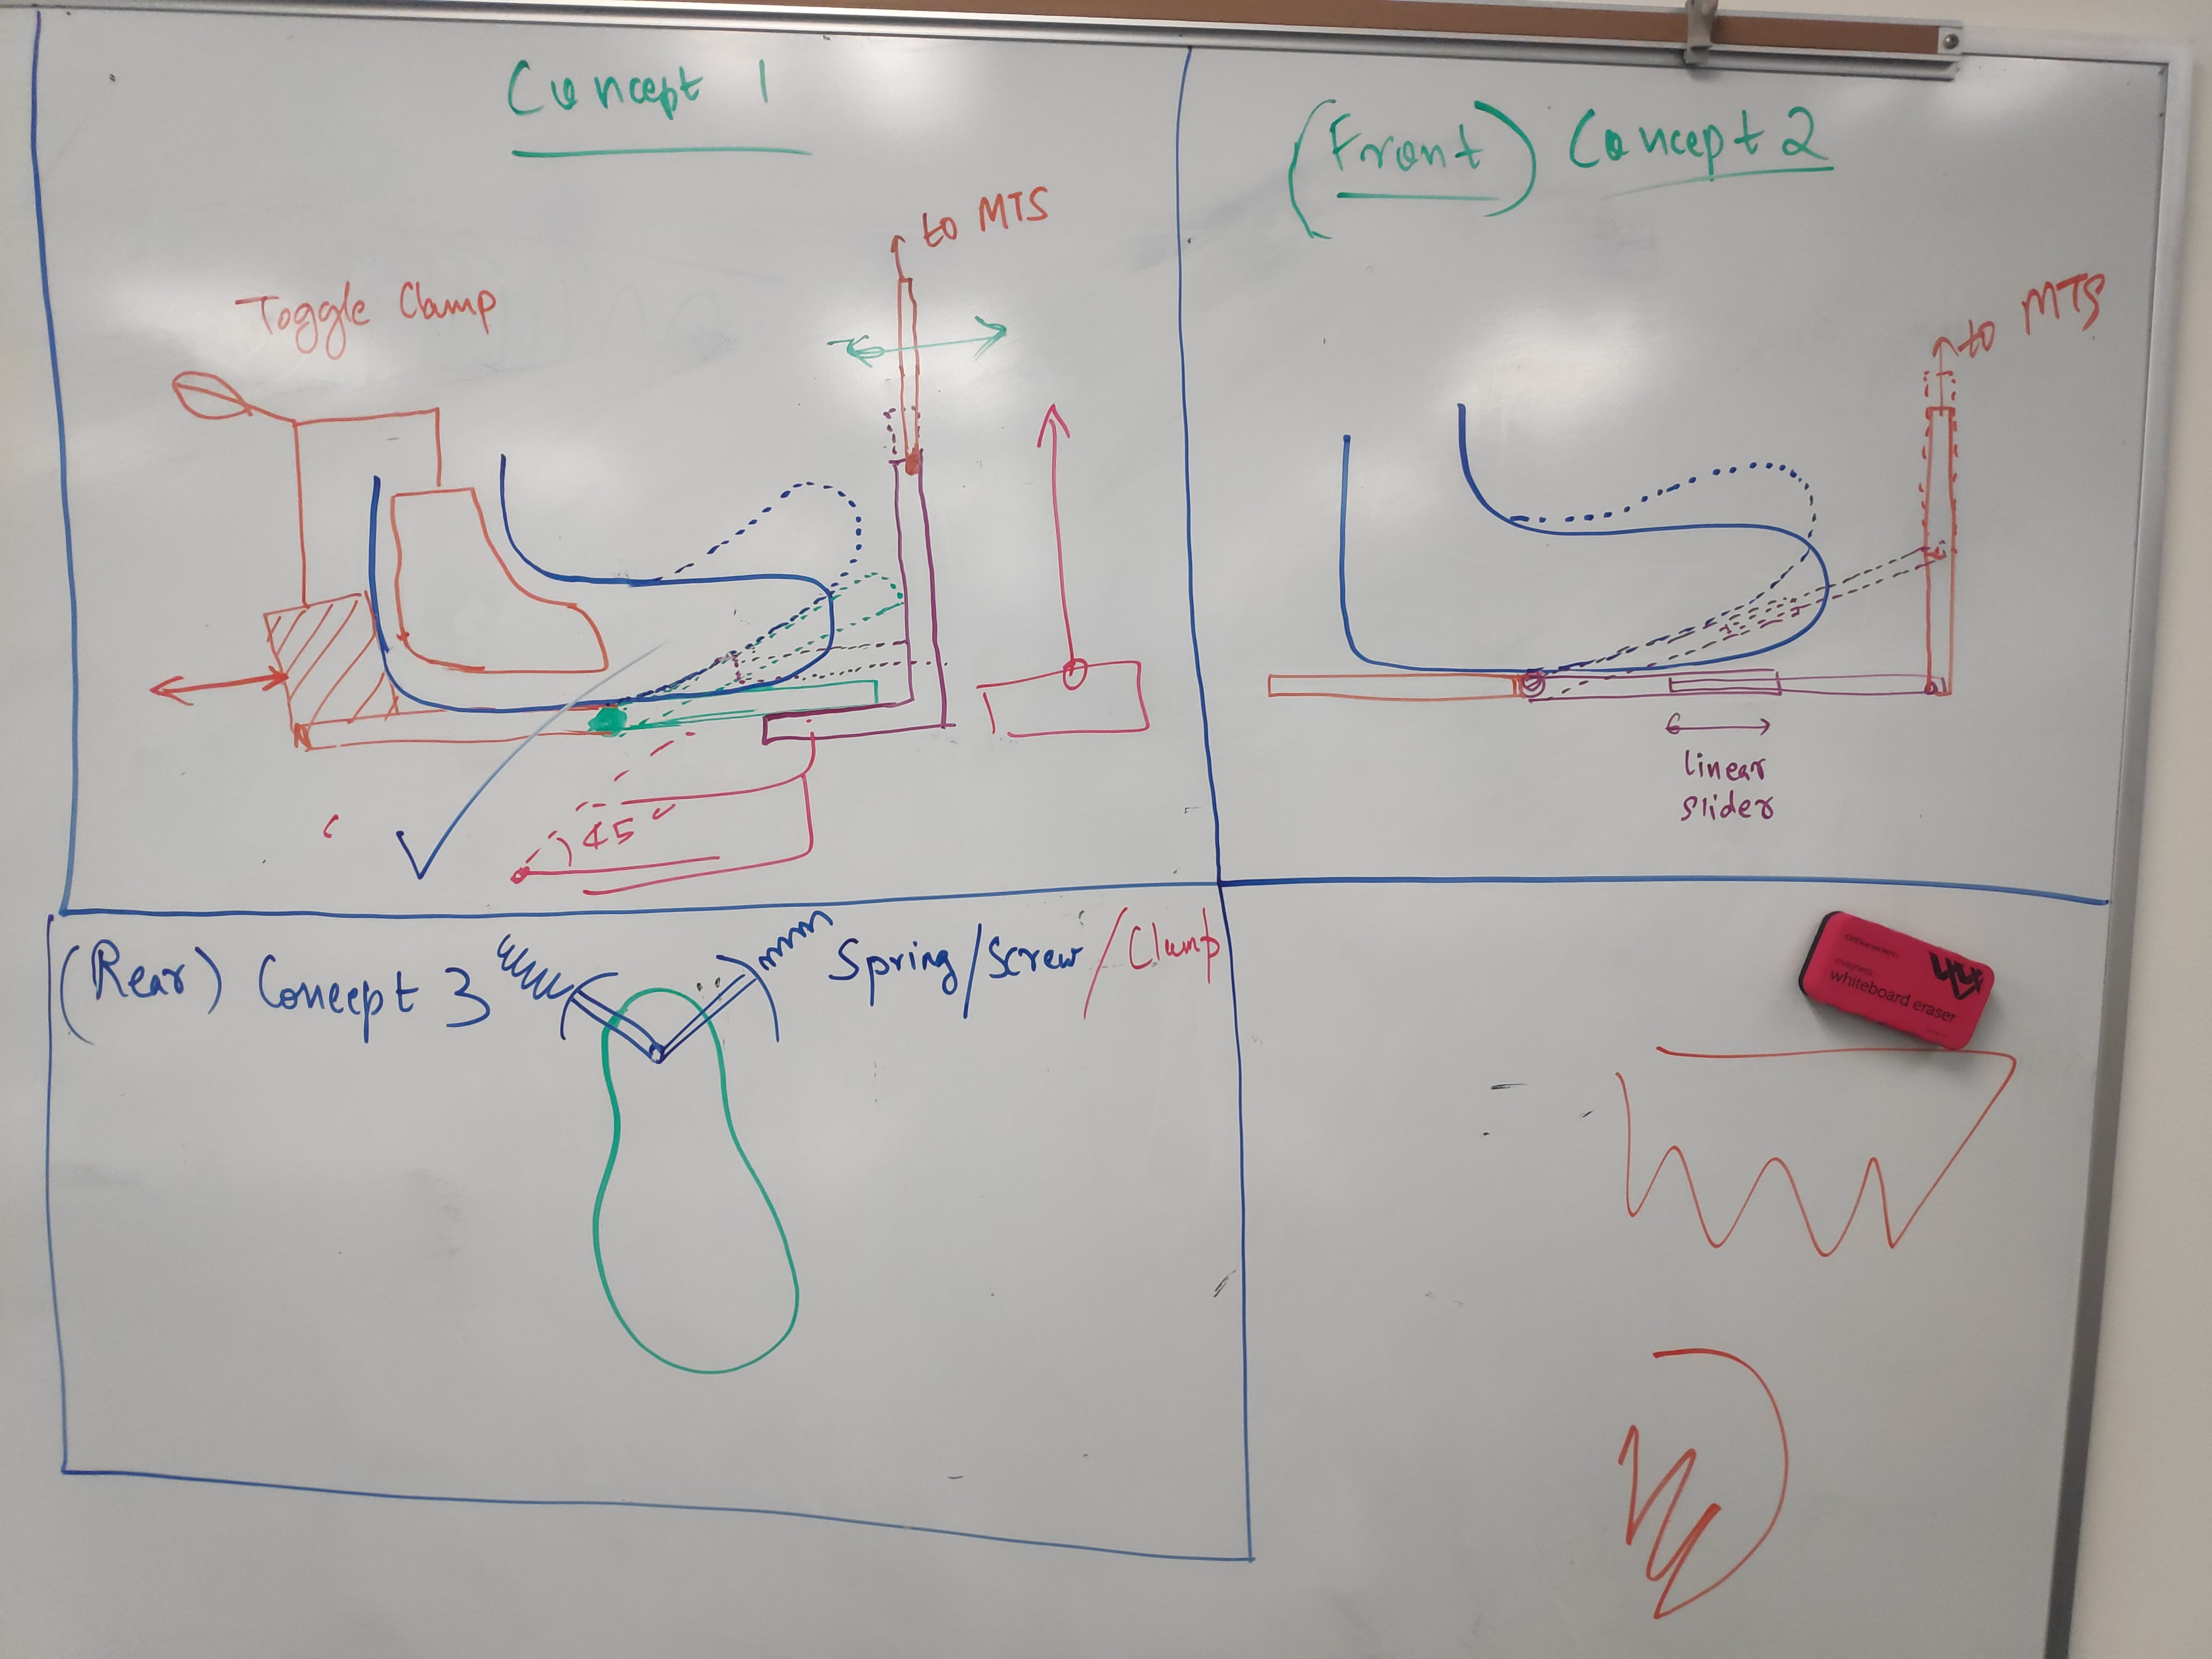 Concept 1
to MTS
Toggle Clamp
45°
(Front) Concept 2
to MTS
linear
slider
(Rear) Concept 3
Spring/Screw/Clamp
magnetic
whiteboard eraser